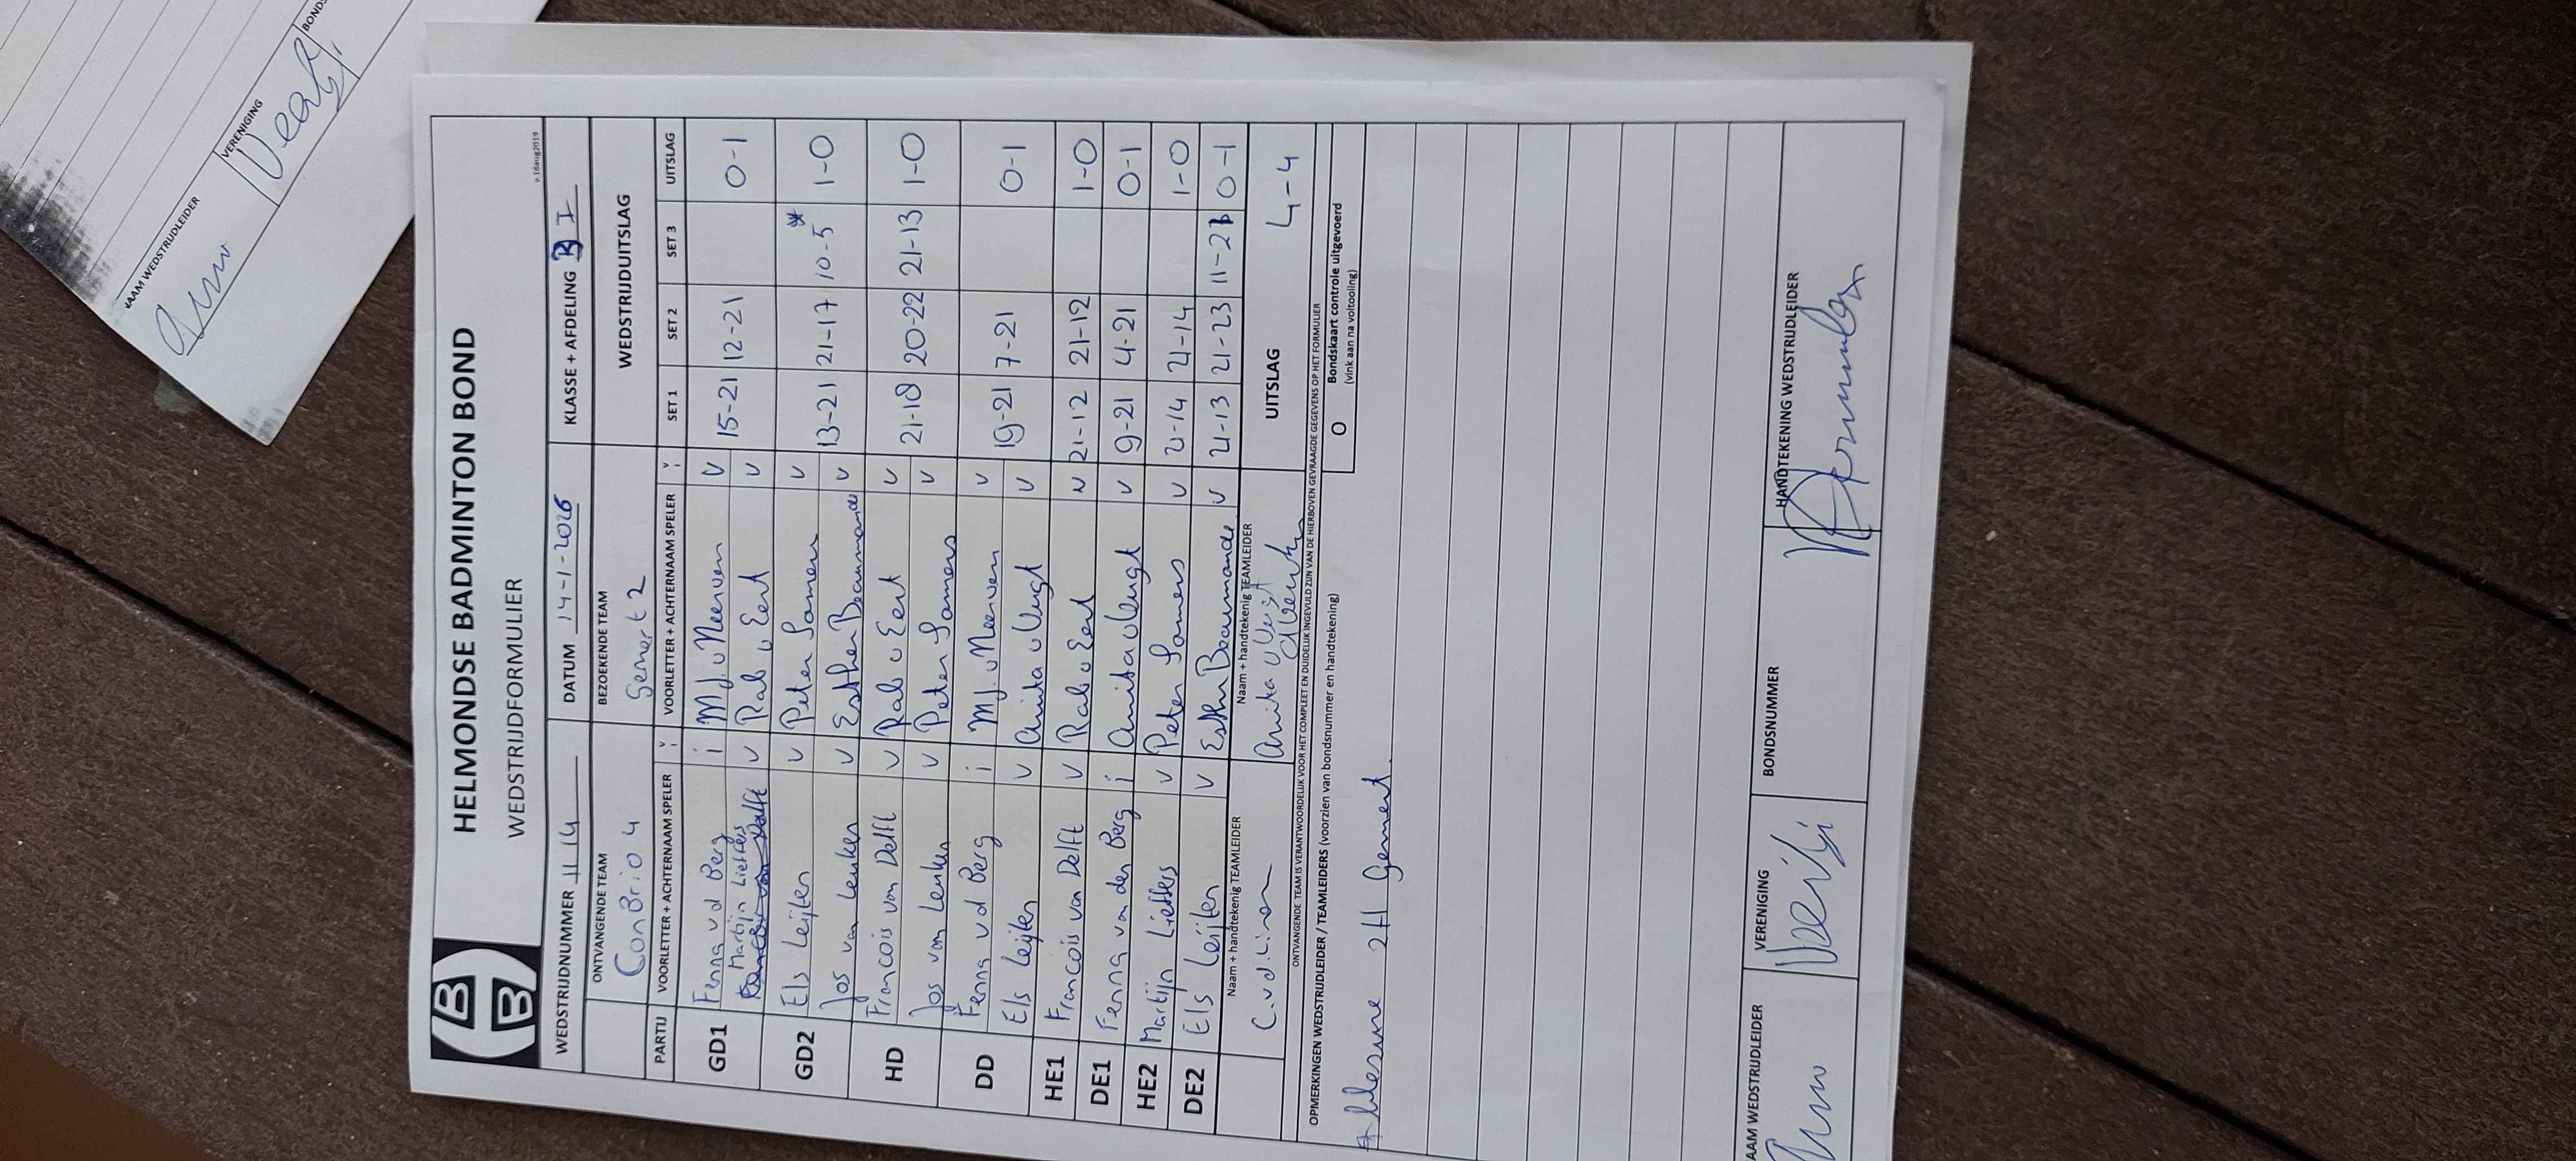 HELMONDSE BADMINTON BOND
WEDSTRIJDFORMULIER
v.16aug2019
WEDSTRIJDNUMMER 1114 DATUM 14-1-2026 KLASSE + AFDELING B I
ONTVANGENDE TEAM BEZOEKENDE TEAM WEDSTRIJDUITSLAG
ConBrio 4 Gemert 2
PARTIJ VOORLETTER + ACHTERNAAM SPELER VOORLETTER + ACHTERNAAM SPELER SET 1 SET 2 SET 3 UITSLAG
GD1 Fenna vd Berg i M.J. v Meerven V 15-21 12-21 0-1
Martijn Lieffers v Rob v Eert v
GD2 Els Leijten v Peter Somers v 13-21 21-17 10-5* 1-0
Jos van Leuken v Esther Beaumande v
HD Francois van Delft v Rob v Eert v 21-18 20-22 21-13 1-0
Jos van Leuken v Peter Somers v
DD Fenna vd Berg i M.J. v Meerven v 19-21 7-21 0-1
Els Leijten v Anita v Vugt v
HE1 Francois van Delft v Rob v Eert v 21-12 21-12 1-0
DE1 Fenna van den Berg i Anita v Vugt v 9-21 4-21 0-1
HE2 Martijn Lieffers v Peter Somers v 21-14 21-14 1-0
DE2 Els Leijten v Esther Beaumande v 21-13 21-23 11-21 0-1
Naam + handtekenig TEAMLEIDER Naam + handtekenig TEAMLEIDER UITSLAG 4-4
Anita v Vugt
ONTVANGENDE TEAM IS VERANTWOORDELIJK VOOR HET COMPLEET EN DUIDELIJK INGEVULD ZIJN VAN DE HIERBOVEN GEVRAAGDE GEGEVENS OP HET FORMULIER
OPMERKINGEN WEDSTRIJDLEIDER / TEAMLEIDERS (voorzien van bondsnummer en handtekening)
O Bondskaart controle uitgevoerd
(vink aan na voltooiing)
* blessure 2H Gemert.
NAAM WEDSTRIJDLEIDER VERENIGING BONDSNUMMER HANDTEKENING WEDSTRIJDLEIDER
NAAM WEDSTRIJDLEIDER VERENIGING